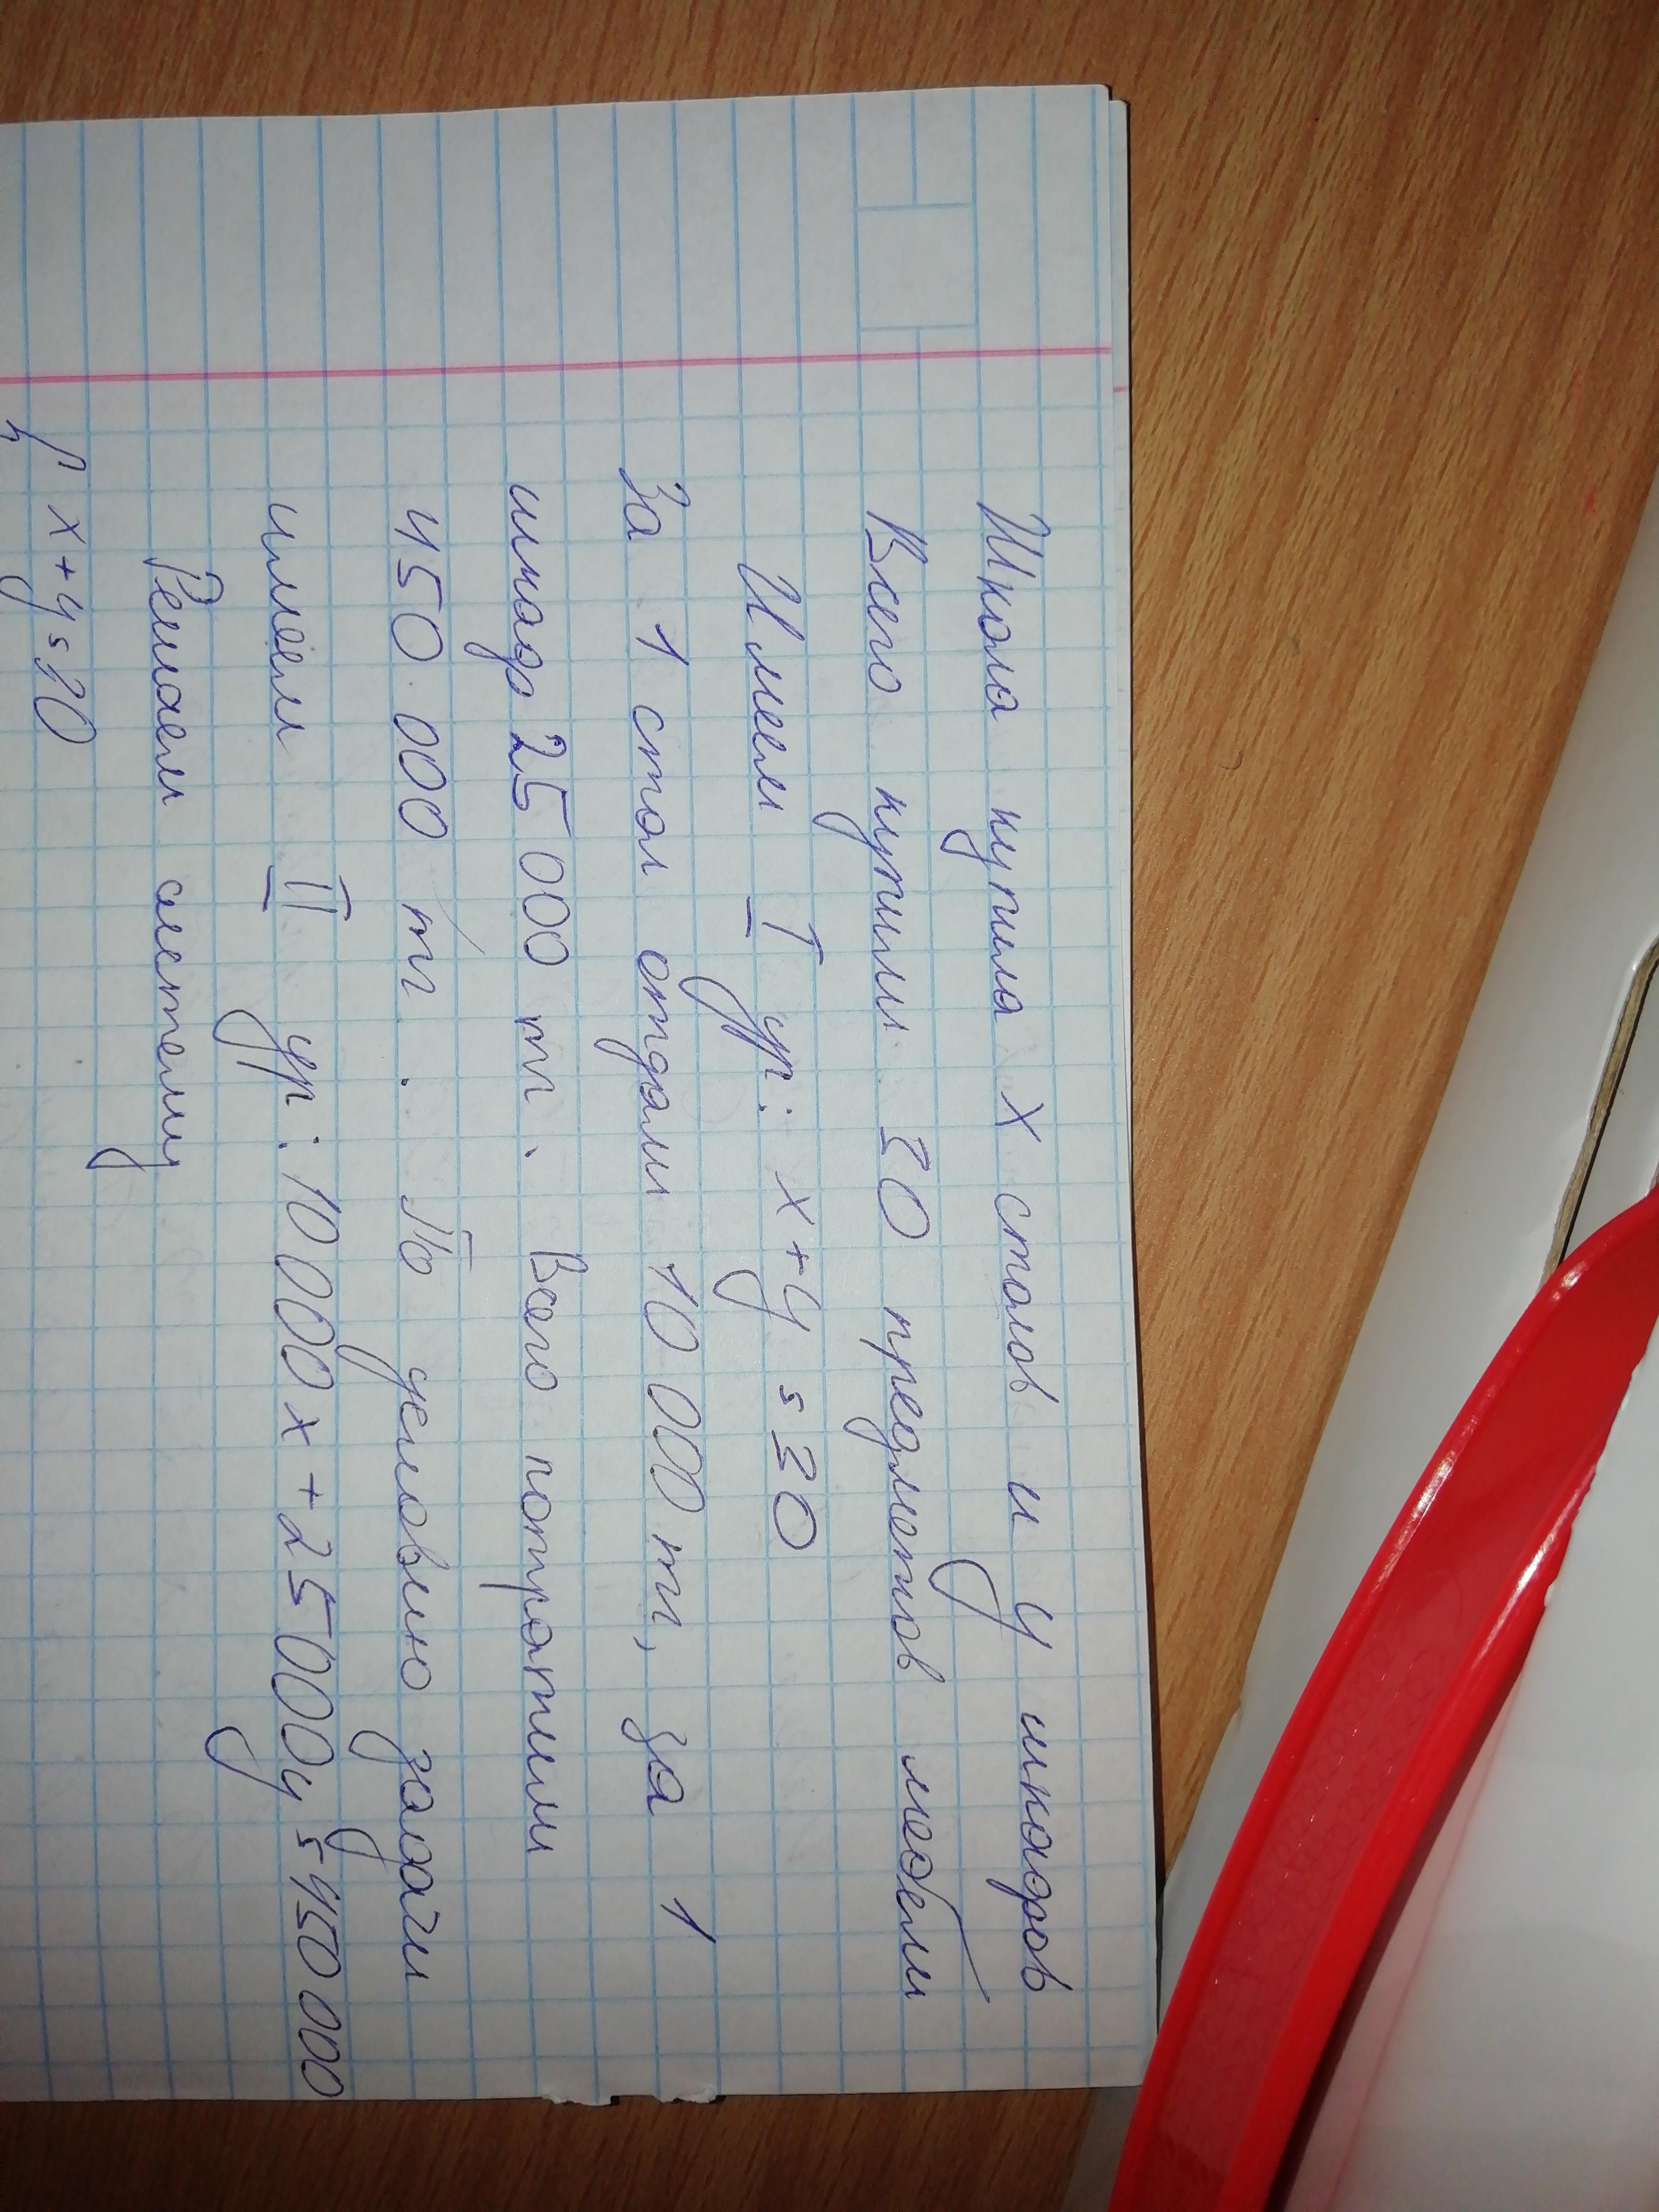 Школа купила х столов и у шкафов
Всего купили 30 предметов мебели
Имеем I ур: х+у = 30
За 1 стол отдали 10 000 тг, за 1
шкаф 25 000 тг. Всего потратили
450 000 тг. По условию задачи
имеем II ур: 10 000х + 25000у = 450 000
Решаем систему
{ х+у=30